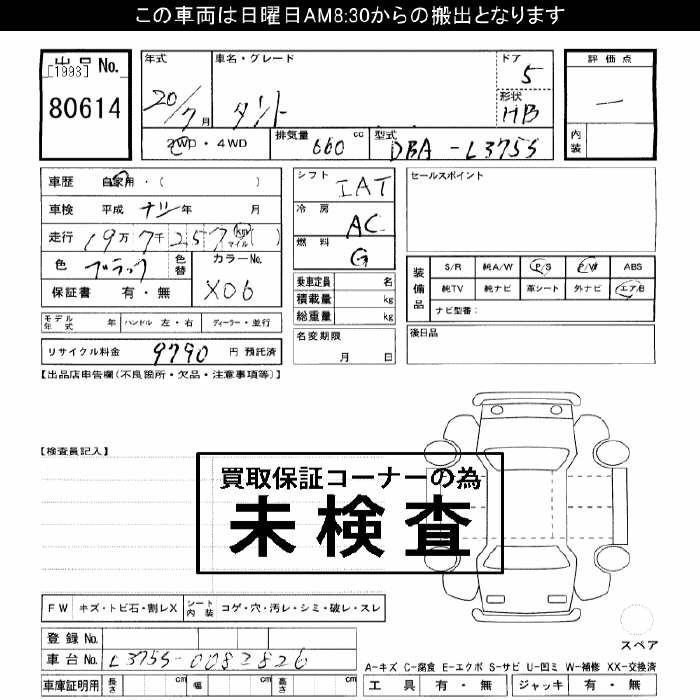 この車両は日曜日AM8:30からの搬出となります
出品 No.
[1993]
80614
年式
20/7月
車名・グレード
タント
ドア
5
形状
HB
評価点
―
内装
2WD・4WD
排気量 660 cc
型式 DBA-L375S
車歴 自家用・( )
車検 平成 ナシ 年 月
走行 19万7千257 km マイル ( )
色 ブラック
色替
カラーNo.
X06
保証書 有・無
シフト
IAT
冷房
AC
燃料
G
乗車定員 名
積載量 kg
総重量 kg
セールスポイント
装備品
S/R 純A/W P/S P/W ABS
純TV 純ナビ 革シート 外ナビ エアB
ナビ型番:
モデル年式 年 ハンドル 左・右 ディーラー・並行
リサイクル料金 9790 円 預託済
名変期限
月 日
後日品
【出品店申告欄(不良箇所・欠品・注意事項等)】
【検査員記入】
買取保証コーナーの為
未検査
FW キズ・トビ石・割レX シート内装 コゲ・穴・汚レ・シミ・破レ・スレ
登録No.
車台No. L375S-0082826
車庫証明用 長さ cm 幅 cm 高さ cm
スペア
A-キズ C-腐食 E-エクボ S-サビ U-凹ミ W-補修 XX-交換済
工具 有・無 ジャッキ 有・無